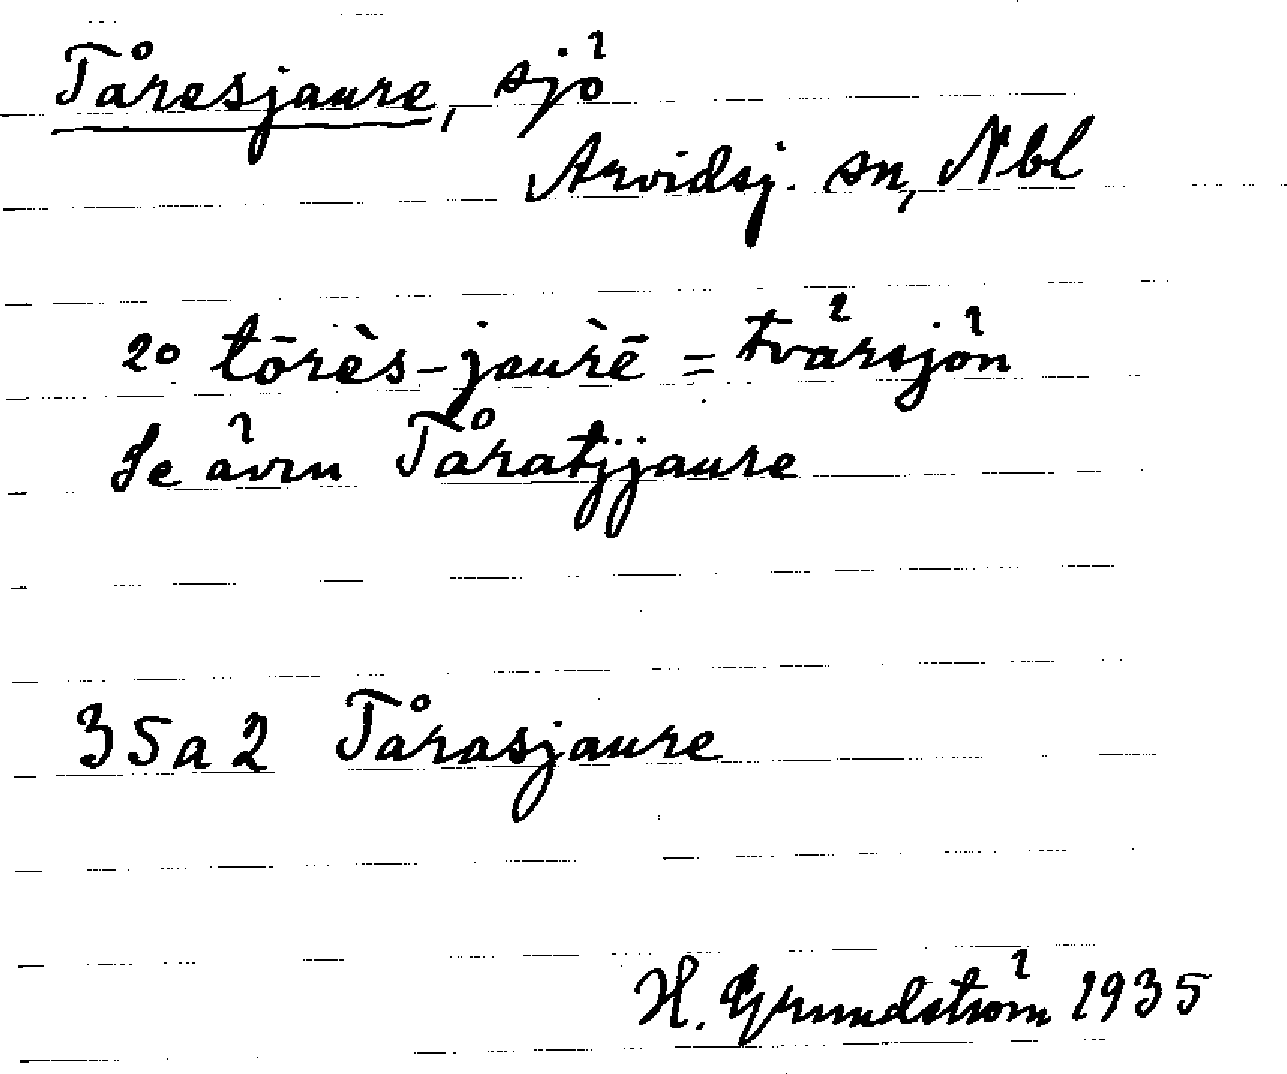 Tåresjaure, sjö
Arvidsj. sn, Nbl
20 tōrès-jaùrē = tvärsjön
Se även Tåratjjaure
35a2 Tårasjaure
H. Grundström 1935